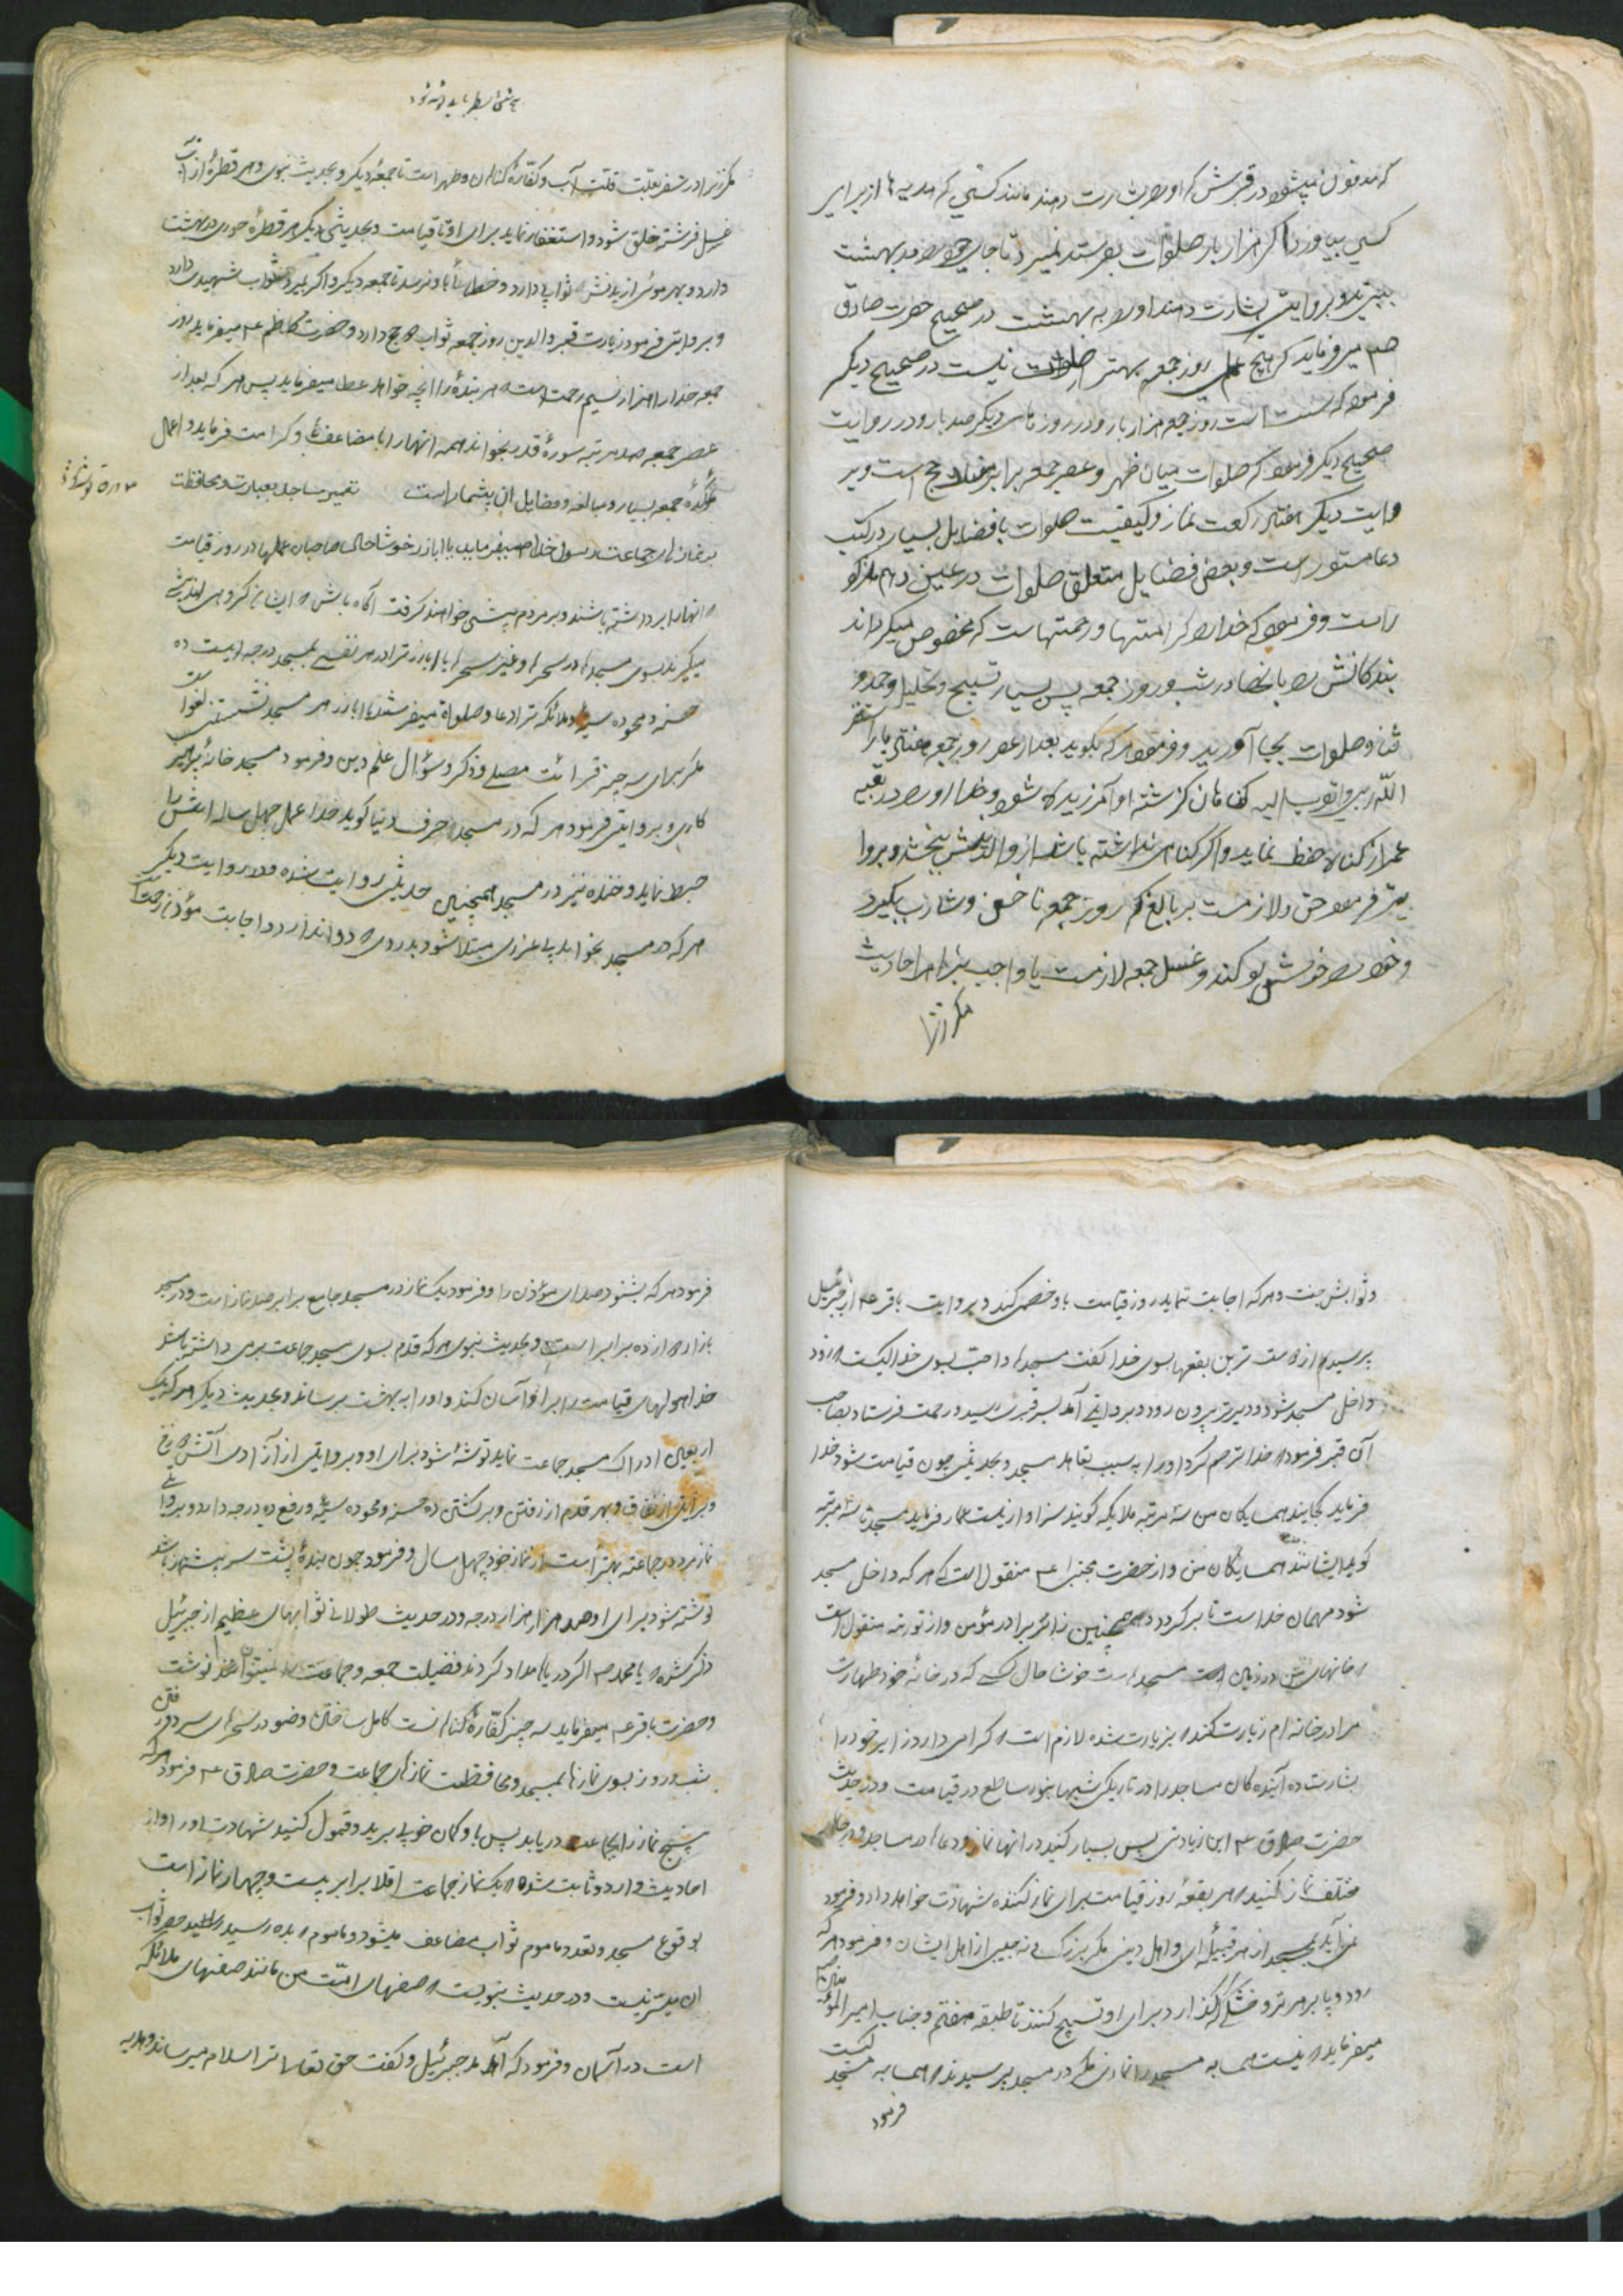 که مدفون میشود در قبرش که او را بشارت دهند مانند کسی که هدیه ها از برای
کسی بیاورد اگر هزار بار صلوات بفرستد نمیرد تا جای خود را در بهشت
ببیند و بروایتی بشارت دهند او را به بهشت در صحیح حضرت صادق
میفرماید که هیچ عمل روز جمعه بهتر از صلوات نیست در صحیح دیگر
فرمود که سنت است روز جمعه هزار بار و در روزهای دیگر صد بار و در روایت
صحیح دیگر فرمود که صلوات میان ظهر و عصر جمعه برابر هفتاد حج است و بر
وایت دیگر هفتاد رکعت نماز و کیفیت صلوات با فضایل بسیار در کتب
دعا مستور است و بعض فضایل متعلق صلوات در عین دهم مذکو
راست و فرمود که خدا را کرامتها و رحمتهاست که مخصوص میکرداند
بندکانش را بانها در شب و روز جمعه پس بسیار تسبیح و تحلیل و حمد و
ثنا و صلوات بجا آورید و فرمود هر که بکوید بعد از عصر روز جمعه هفتاد بار استغفر
الله ربی و اتوب الیه کناهان کزشته او آمرزیده شود و خدا او را در بقیه
عمر از کناه حفظ نماید و اگر کناهی نداشته باشد از والدینش بخشد و بروا
یتی فرمود حق و لازمست بر بالغ که روز جمعه ناخن و شارب بکیرد
و خود را خوش بو کند و غسل جمعه لازمست یا واجب بنابر احادیث
مکر زنرا
مکر زنرا در سفر بعلت قلت آب و کفاره کناهان و طهر است تا جمعه دیکر و بحدیث نبوی و هر قطره از آب
غسل فرشته خلق شود و استغفار نماید برای او تا قیامت و بحدیثی دیکر هر قطره حوری در بهشت
دارد و بهر موئی از بدنش ثواب دارد و خطائی باو نرسد تا جمعه دیکر و اکر بمیرد ثواب شهیدی دارد
و بروایتی فرمود زیارت قبر والدین روز جمعه ثواب حج دارد و حضرت کاظم ع میفرماید روز
جمعه خدا را هزار نسیم رحمت است هر بنده را انچه خواهد عطا میفرماید پس هر که بعد از
عصر جمعه صد مرتبه سوره قدر بخواند همه انها را با مضاعف و کرامت فرماید و اعمال
مؤکده جمعه بسیار و مبالغه و فضایل ان بیشمار است تعمیر مساجد بعبارت و محافظت
بر نماز های جماعت رسول خدا ص میفرماید یا اباذر خوشا حال صاحبان عملها در روز قیامت
انها را برداشته باشند و بر مردم پیشی خواهند کرفت آکاه باش ایشان کروهی اند پیشی
میکیرند بسوی مسجد در سحرها و غیر سحرها یا اباذر ترا در هر نفسی بمسجد درجه ایست ده
حسنه و محو ده سیئه و ملائکه ترا دعا و صلواة میفرستند یا اباذر هر مسجد نشستنی لغو است
مکر برای سه چیز قرائت مصلی و ذکر و سؤال علم دین و فرمود مسجد خانه پرهیز
کاری و بروایتی فرمود هر که در مسجد حرف دنیا کوید خدا عمل چهل ساله اش را
حبط نماید و خنده نیز در مسجد همچنین حدیثی روایت شده و در روایت دیکر
هر که در مسجد بخوابد بی عذری مبتلا شود بدردی دوا ندارد و اجابت مؤذن رحمتیست
و ثوابش جنت و هر که اجابت ننماید روز قیامت باو خصمی کند و بروایت باقر ع از جبرئیل
پرسید از دوست ترین بقعها بسوی خدا کفت مسجد و احب بسوی خدا کیست زود
داخل مسجد شود و دیرتر بیرون رود و بروایتی آمد بسر قبری رسید و رحمت فرستاد بصاحب
آن قبر فرمود خدا ترحم کرد او را بسبب تعاهد مسجد و بحدیثی چون قیامت شود خدا
فرماید کجایند همسایکان من سه مرتبه ملائکه کویند سزاوار نیست فرماید مسجد تا سه مرتبه
کوید ایشانند همسایکان من و از حضرت مجتبی ع منقول است که هر که داخل مسجد
شود مهمان خداست تا برکردد همچنین زائر برادر مؤمن و از توریة منقول است
خانهای من در زمین مسجد است خوشا حال کسی که در خانه خود طهارت
مرا در خانه ام زیارت کند بزیارت شده لازم است کرامی دارد زایر خود را
بشارت ده آینده کان مساجد را در تاریکی شبها بنور ساطع در قیامت و در حدیث
حضرت صادق ع این زیادتی پس بسیار کنید در انها نماز و دعا در مساجد و در جاهای
مختلف نماز کنید هر بقعه روز قیامت برای نماز کننده شهادت خواهد داد و فرمود
نمی آید بمسجد از هر قبیله ای و اهل دینی مکر بزرک و نجیب از اهل ایشان و فرمود هر که
رود و پا بر هر تر و خشکی کذارد برای او تسبیح کنند تا طبقه هفتم و جناب امیر المؤمنین
میفرماید نیست همسایه مسجد را نمازی مکر در مسجد پرسیدند همسایه مسجد کیست
فرمود
فرمود هر که بشنود صدای مؤذن را و فرمود یک نماز در مسجد جامع برابر صد نماز است و در مسجد
بازار دوازده برابر است و بحدیث نبوی هر که قدم بسوی مسجد جماعت برمی داشته باشد
خدا هولهای قیامت را بر او آسان کند و او را به بهشت برساند و بحدیث دیکر هر که یک
اربعین ادراک مسجد جماعت نماید نوشته شود برای او و بروایتی از آزادی آتش دوزخ
و براتی از نفاق و بهر قدم از رفتن و برکشتن ده حسنه و محو ده سیئه و رفع ده درجه دارد و بروایتی
نماز مرد در جماعت بهتر است از نماز خود چهل سال و فرمود چون بنده پشت سر پیشنماز باشد
نوشته شود برای او صد هزار هزار درجه و در حدیث طولانی ثوابهای عظیم از جبرئیل
ذکر شده یا محمد ص اکر دریاها مداد کردند فضیلت جمعه و جماعت را نمیتوان نوشت
و حضرت باقر ع میفرماید سه چیز کفاره کناه است کامل ساختن وضو در سحرهای سرد و رفتن
شب و روز بسوی نمازها بمسجد و محافظت نمازهای جماعت و حضرت صادق ع فرمود هر که
پنج نماز را بجماعت دریابد پس باو کمان خوبی برید و قبول کنید شهادت او را و از
احادیث وارد و ثابت شده یک نماز جماعت اقلا برابر بیست و چهار نماز است
بوقوع مسجد و تعدد ماموم ثواب مضاعف میشود و ماموم بده رسید حصر ثواب
ان میسر نیست و در حدیث نبویست صفهای امت من مانند صفهای ملائکه
است در آسمان و فرمود که آمد جبرئیل و کفت حق تعالی ترا سلام میرساند و هدیه